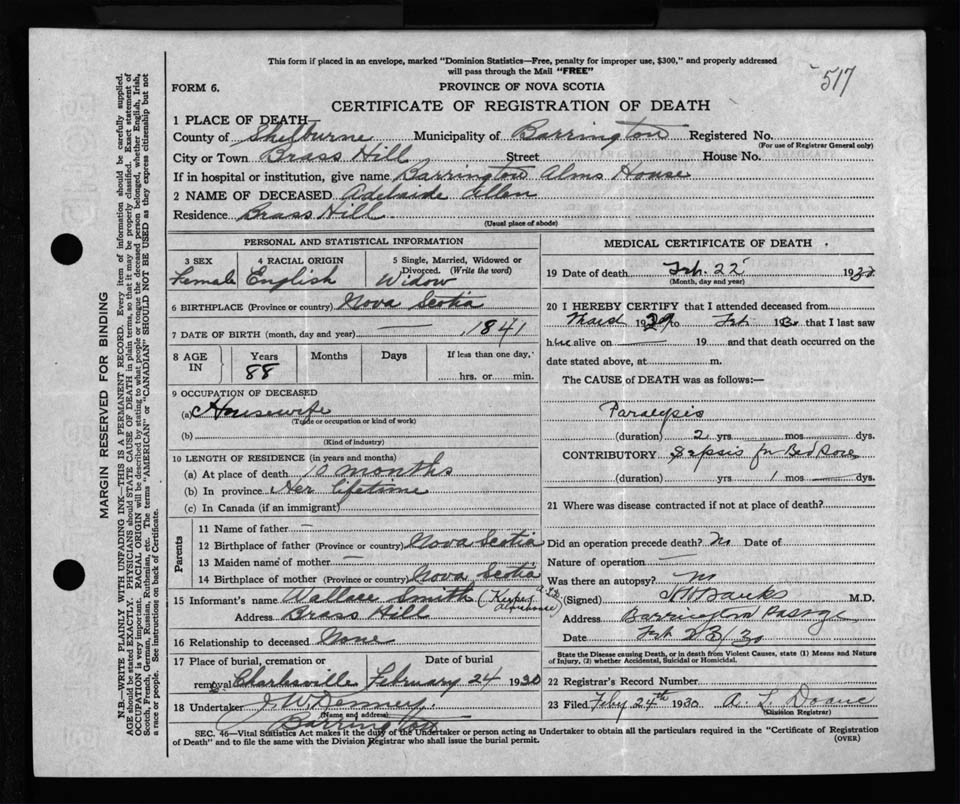 This form if placed in an envelope, marked "Dominion Statistics—Free, penalty for improper use, $300," and properly addressed
will pass through the Mail "FREE"
517
FORM 6. PROVINCE OF NOVA SCOTIA
CERTIFICATE OF REGISTRATION OF DEATH
1 PLACE OF DEATH
County of Shelburne Municipality of Barrington Registered No.
(For use of Registrar General only)
City or Town Brass Hill Street House No.
If in hospital or institution, give name Barrington Alms House
2 NAME OF DECEASED Adelaide Allen
Residence Brass Hill
(Usual place of abode)
PERSONAL AND STATISTICAL INFORMATION
3 SEX 4 RACIAL ORIGIN 5 Single, Married, Widowed or
Divorced. (Write the word)
Female English Widow
6 BIRTHPLACE (Province or country) Nova Scotia
7 DATE OF BIRTH (month, day and year) — , 1841
8 AGE IN Years Months Days If less than one day,
88 hrs. or min.
9 OCCUPATION OF DECEASED
(a) Housewife
(Trade or occupation or kind of work)
(b)
(Kind of industry)
10 LENGTH OF RESIDENCE (in years and months)
(a) At place of death 10 months
(b) In province Her lifetime
(c) In Canada (if an immigrant)
Parents
11 Name of father —
12 Birthplace of father (Province or country) Nova Scotia
13 Maiden name of mother —
14 Birthplace of mother (Province or country) Nova Scotia
15 Informant's name Wallace Smith (Keeper of the almshouse)
Address Brass Hill
16 Relationship to deceased None
17 Place of burial, cremation or Date of burial
removal Charlesville February 24 1930
18 Undertaker J. W.
(Name and address)
Barrington
MEDICAL CERTIFICATE OF DEATH
19 Date of death Feb. 22 1930
(Month, day and year)
20 I HEREBY CERTIFY that I attended deceased from
March 1929 to Feb 1930 that I last saw
her alive on — 19 and that death occurred on the
date stated above, at m.
The CAUSE of DEATH was as follows:—
Paralysis
(duration) 2 yrs. mos. dys.
CONTRIBUTORY Sepsis fr Bed Sores
(duration) yrs 1 mos. dys.
21 Where was disease contracted if not at place of death?
Did an operation precede death? No Date of
Nature of operation —
Was there an autopsy? No
(Signed) Banks M.D.
Address Barrington Passage
Date Feb 23/30
State the Disease causing Death, or in death from Violent Causes, state (1) Means and Nature
of Injury, (2) whether Accidental, Suicidal or Homicidal.
22 Registrar's Record Number
23 Filed Feby 24th 1930 A. L. Doane
(Division Registrar)
SEC. 46—Vital Statistics Act makes it the duty of the Undertaker or person acting as Undertaker to obtain all the particulars required in the "Certificate of Registration
of Death" and to file the same with the Division Registrar who shall issue the burial permit.
(OVER)
MARGIN RESERVED FOR BINDING
N.B.—WRITE PLAINLY WITH UNFADING INK—THIS IS A PERMANENT RECORD. Every item of information should be carefully supplied.
AGE should be stated EXACTLY. PHYSICIANS should STATE CAUSE OF DEATH in plain terms, so that it may be properly classified. Exact statement of
OCCUPATION is very important. RACIAL ORIGIN will be described by stating to what people or tongue the deceased person belonged, whether English, Irish,
Scotch, French, German, Russian, Ruthenian, etc. The terms "AMERICAN" or "CANADIAN" SHOULD NOT BE USED as they express citizenship but not
a race or people. See instructions on back of Certificate.